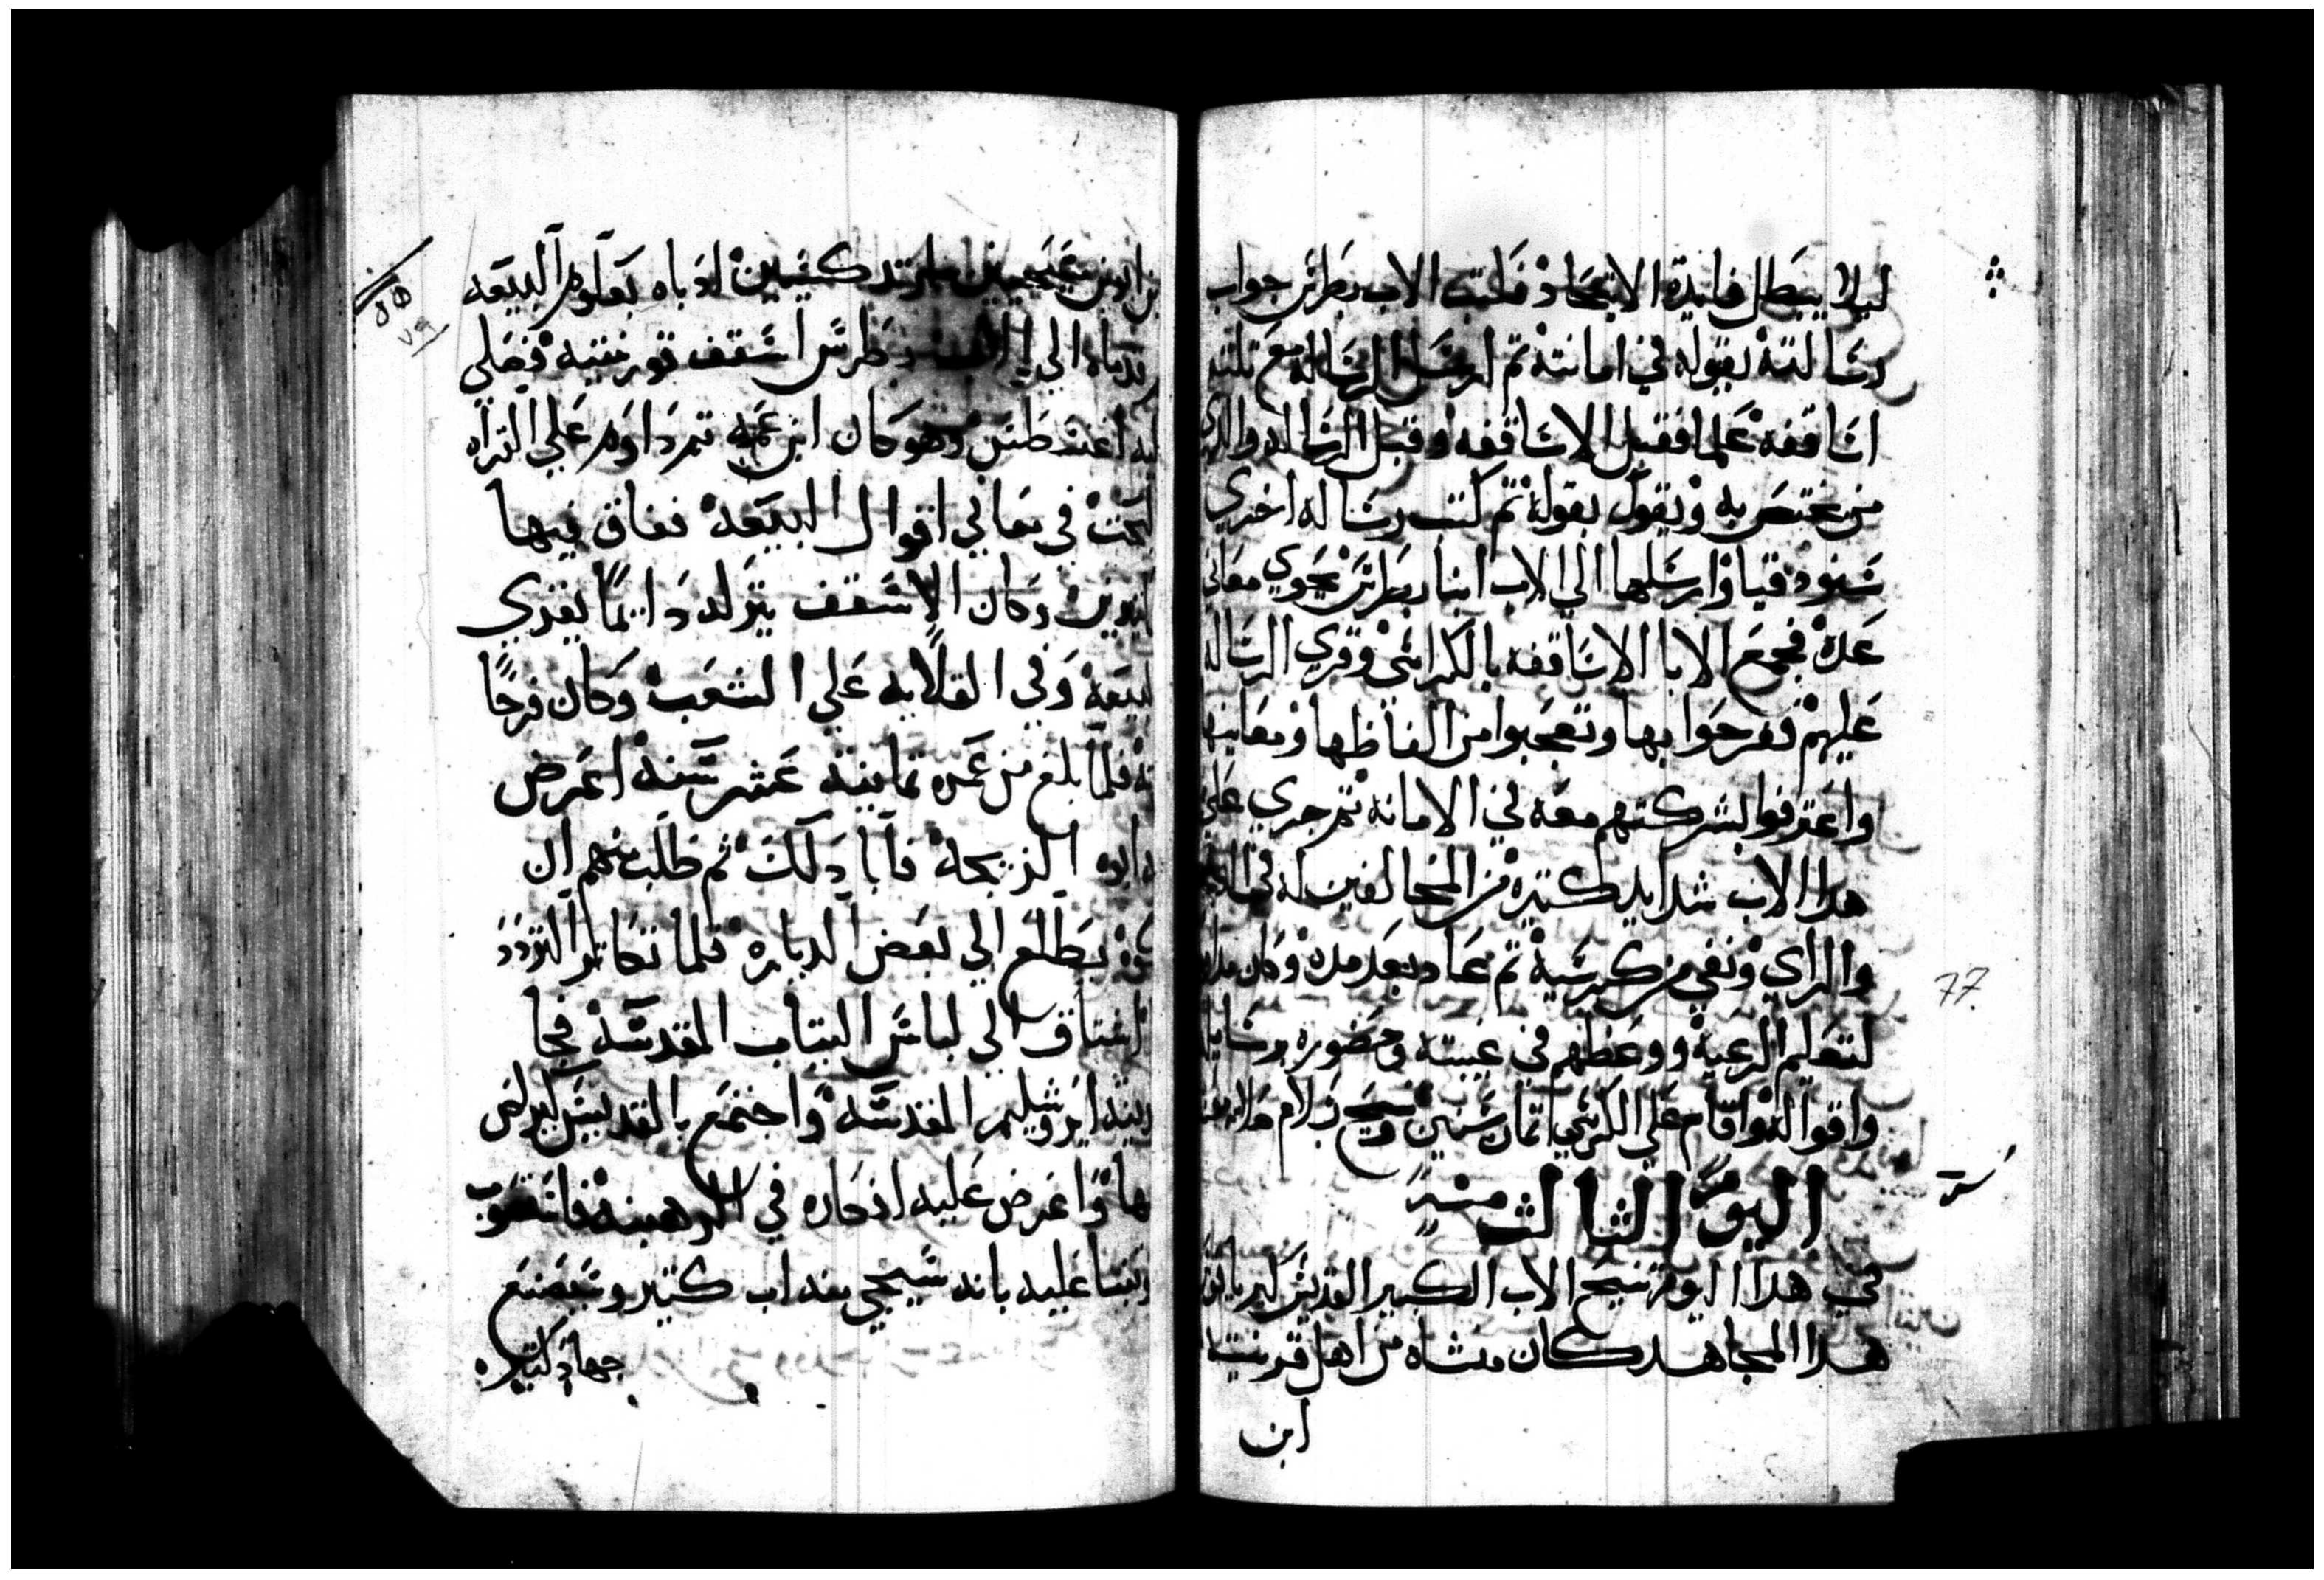 ليلا يبطل فايدة الاتحاد فكتب الاب بطرس جواب
رسالته بقبوله في امانته تم ارسل الرساله مع تلته
اساقفه علما فقبل الاساقفه وقبل الرساله والدي
من يختص به ويقول بقوله تم كتب رساله اخري
سنوديقيا وارسلها الي الاب انبا بطرس تحوي معاني
عدة فجمع الابا الاساقفه بالكراسي وقري الرساله
عليهم ففرحوا بها وتعجبوا من الفاظها ومعانيها
واعترفوا بشركتهم معه في الامانه تم جري علي
هدا الاب شدايد كتيره من المخالفين له في
والراي ونفي من كرسيه تم عاد بعد مده وكان مداوم
لتعليم الرعيه ووعظهم في غيبته وحضوره برسايله
واقواله واقام علي الكرسي تمان سنين وتنيح بسلام
اليوم الثالث منه
في هدا اليوم تنيح الاب الكبير القديس
هدا المجاهد كان منشاه من اهل قورنتيه
ابن
77
ابوين مسيحيين ارتدكسيين ادباه بعلوم البيعه
قدماه الي بطرس اسقف قورنتيه فجعلي
اغنسطس وهو كان ابن عمه تم داوم علي القراه
البحت في معاني اقوال البيعه ففاق فيها
وكان الاسقف يتركه دايما يقري
البيعه وفي القلايه علي الشعب وكان فرحا
به فلما بلغ من عمره تمانية عشر سنه اعرض
ابوه الزيجه فابا دلك تم طلب منهم ان
يطلع الي بعض الدياره فلما تكاتر التردد
اشتاق الي لباس التياب المقدسه فجا
مدينة ايروشليم المقدسه واجتمع بالقديس كيرلس
بها واعرض عليه افكاره في الرهبنه فاستصوب
وتنبا عليه بانه سيجي منه اب كتير وسيصنع
جهاد كتيره